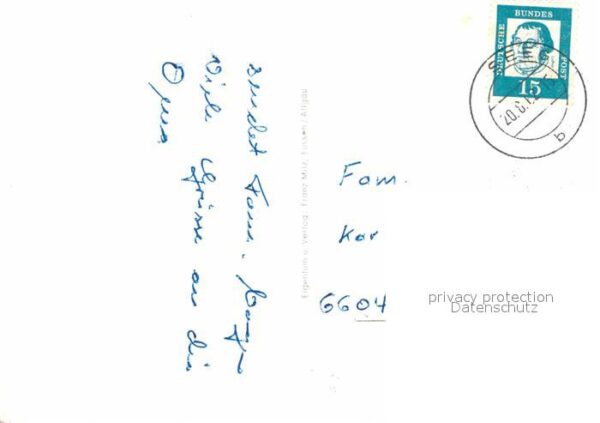 DEUTSCHE
BUNDES
POST
15
Viele Grüsse an die
Oma.
sendet Fam.
Eigentum u. Verlag: Franz Milz, Füssen / Allgäu
Fam.
Kar
6604
privacy protection
Datenschutz
b